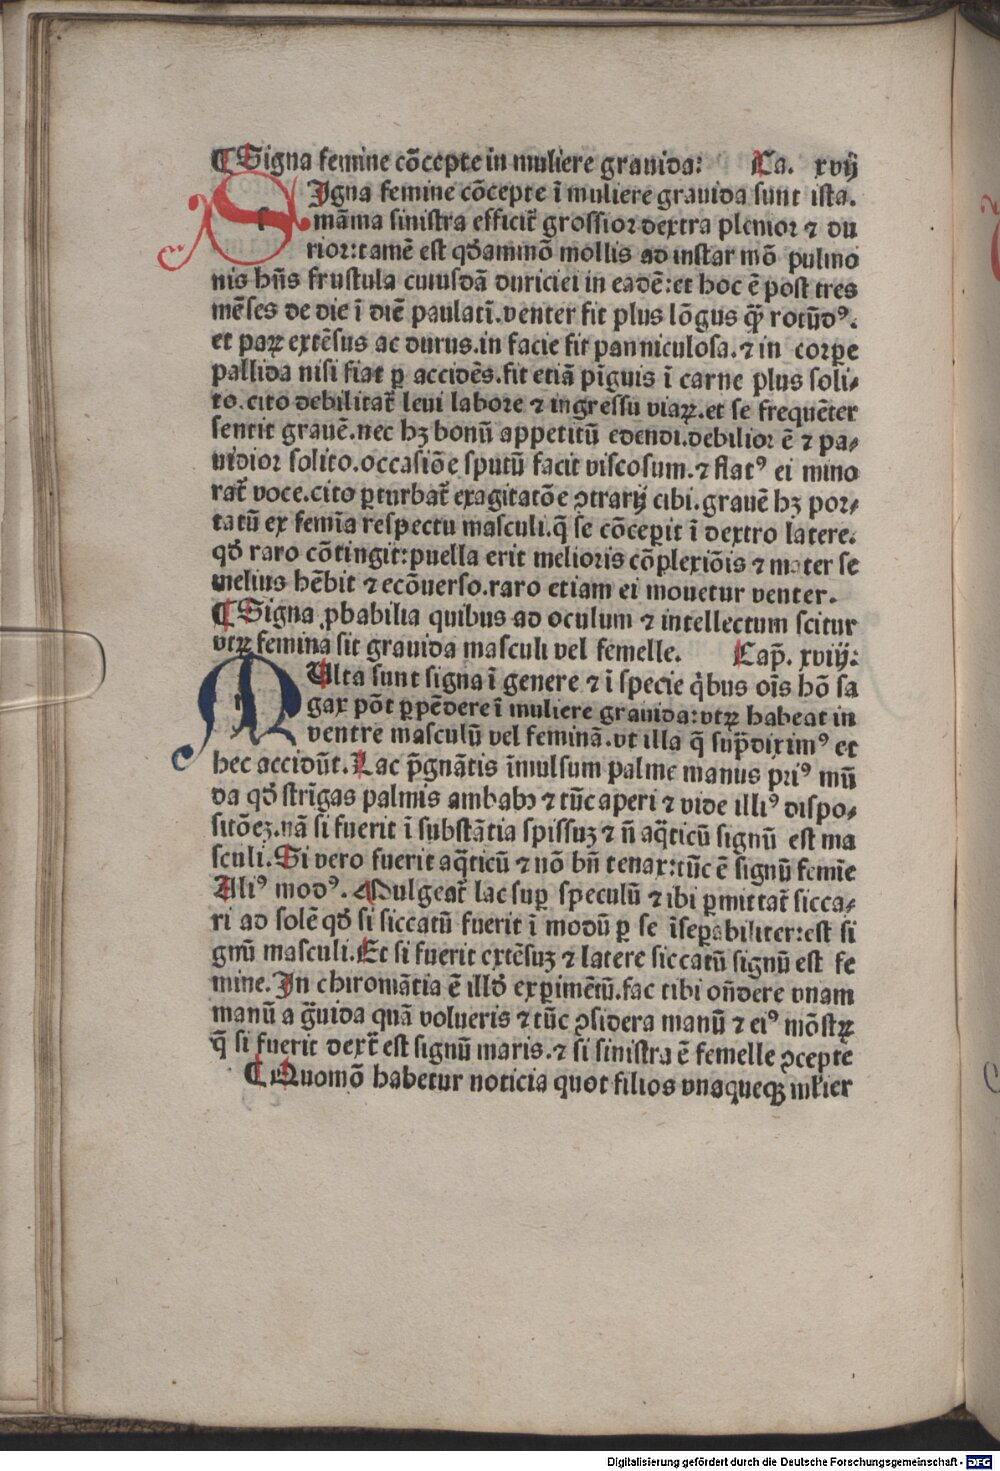 ¶ Signa femine cōcepte in muliere grauida: Ca. xvij
SIgna femine cōcepte ī muliere grauida sunt ista.
māma sinistra efficit᷑ grossior dextra plenior ⁊ du
rior: tamē est qđāmmō mollis ad instar mō pulmo
nis hn̄s frustula cuiusdā duriciei in eadē: et hoc ē post tres
mēses de die ī diē paulatī. venter fit plus lōgus q̄ꝫ rotūdꝰ.
et paꝝ extēsus ac durus. in facie fit panniculosa. ⁊ in corpe
pallida nisi fiat ꝑ accidēs. fit etiā pīguis ī carne plus soli⸗
to. cito debilitat᷑ leui labore ⁊ ingressu viaꝝ. et se frequēter
sentit grauē. nec hꝫ bonū appetitū edendi. debilior ē ⁊ pa⸗
uidior solito. occasiōe sputū facit viscosum. ⁊ flatꝰ ei mino
rat᷑ voce. cito ꝑturbat᷑ exagitatōe ꝯtrarij cibi. grauē hꝫ por⸗
tatū ex femīa respectu masculi. q̄ se cōceperit ī dextro latere.
qđ raro cōtingit: puella erit melioris cōplexiōis ⁊ mater se
melius hēbit ⁊ ecōuerso. raro etiam ei mouetur venter.
¶ Signa ꝓbabilia quibus ad oculum ⁊ intellectum scitur
vtꝝ femina sit grauida masculi vel femelle. Cap̄. xviij:
MUlta sunt signa ī genere ⁊ ī specie q̇bus oīs hō sa
gax pōt ꝑpēdere ī muliere grauida: vtꝝ habeat in
ventre masculū vel feminā. vt illa q̄ sup̄diximꝰ et
hec accidūt. Lac p̄gnātis īmulsum palme manus priꝰ mū
da qđ strīgas palmis ambabꝰ ⁊ tūc aperi ⁊ vide illiꝰ dispo⸗
sitōeꝫ. nā si fuerit ī substātia spissuꝫ ⁊ n̄ aq̄ticū signū est ma
sculi. Si vero fuerit aq̄ticū ⁊ nō bn̄ tenax: tūc ē signū femīe
Aliꝰ modꝰ. Mulgeat᷑ lac suꝑ speculū ⁊ ibi ꝑmittat᷑ sicca⸗
ri ad solē qđ si siccatū fuerit ī modū ꝑ se īseꝑabiliter: est si
gnū masculi. Et si fuerit extēsuꝫ ⁊ latere siccatū signū est fe
mine. In chiromātia ē illđ exꝑimētū. fac tibi on̄dere vnam
manū a g̊uida quā volueris ⁊ tūc ꝯsidera manū ⁊ eiꝰ mōstꝝ
q̄ si fuerit dext᷑ est signū maris. ⁊ si sinistra ē femelle ꝯcepte
¶ Quomō habetur noticia quot filios vnaqueqꝫ mł'ier
Digitalisierung gefördert durch die Deutsche Forschungsgemeinschaft - DFG